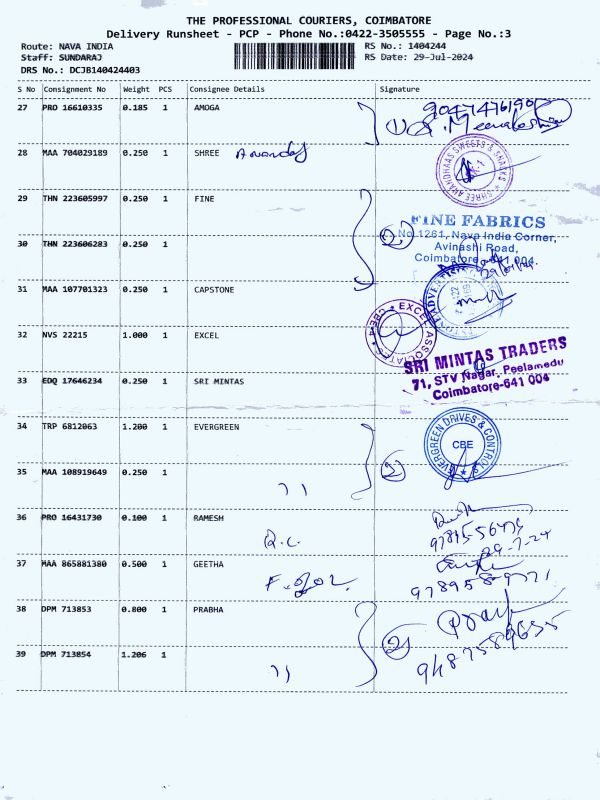 THE PROFESSIONAL COURIERS, COIMBATORE
Delivery Runsheet - PCP - Phone No.:0422-3505555 - Page No.:3
Route: NAVA INDIA RS No.: 1404244
Staff: SUNDARAJ RS Date: 29-Jul-2024
DRS No.: DCJB140424403
S No Consignment No Weight PCS Consignee Details Signature
27 PRO 16610335 0.185 1 AMOGA
28 MAA 704029189 0.250 1 SHREE Anandas
SHREE ANANDHAAS SWEETS & SNACKS
29 THN 223605997 0.250 1 FINE
FINE FABRICS
No.1261, Nava India Corner,
30 THN 223606283 0.250 1 Avinashi Road,
Coimbatore-641 004.
31 MAA 107701323 0.250 1 CAPSTONE
32 NVS 22215 1.000 1 EXCEL
EXCEL ASSOCIATES
SRI MINTAS TRADERS
33 EDQ 17646234 0.250 1 SRI MINTAS 71, STV Nagar, Peelamedu
Coimbatore-641 004
34 TRP 6812063 1.200 1 EVERGREEN
EVERGREEN DRIVES & CONTROLS
CBE
35 MAA 108919649 0.250 1
36 PRO 16431730 0.100 1 RAMESH
R.C. 29-7-24
37 MAA 865881380 0.500 1 GEETHA
38 DPM 713853 0.800 1 PRABHA
39 DPM 713854 1.206 1 9487589655